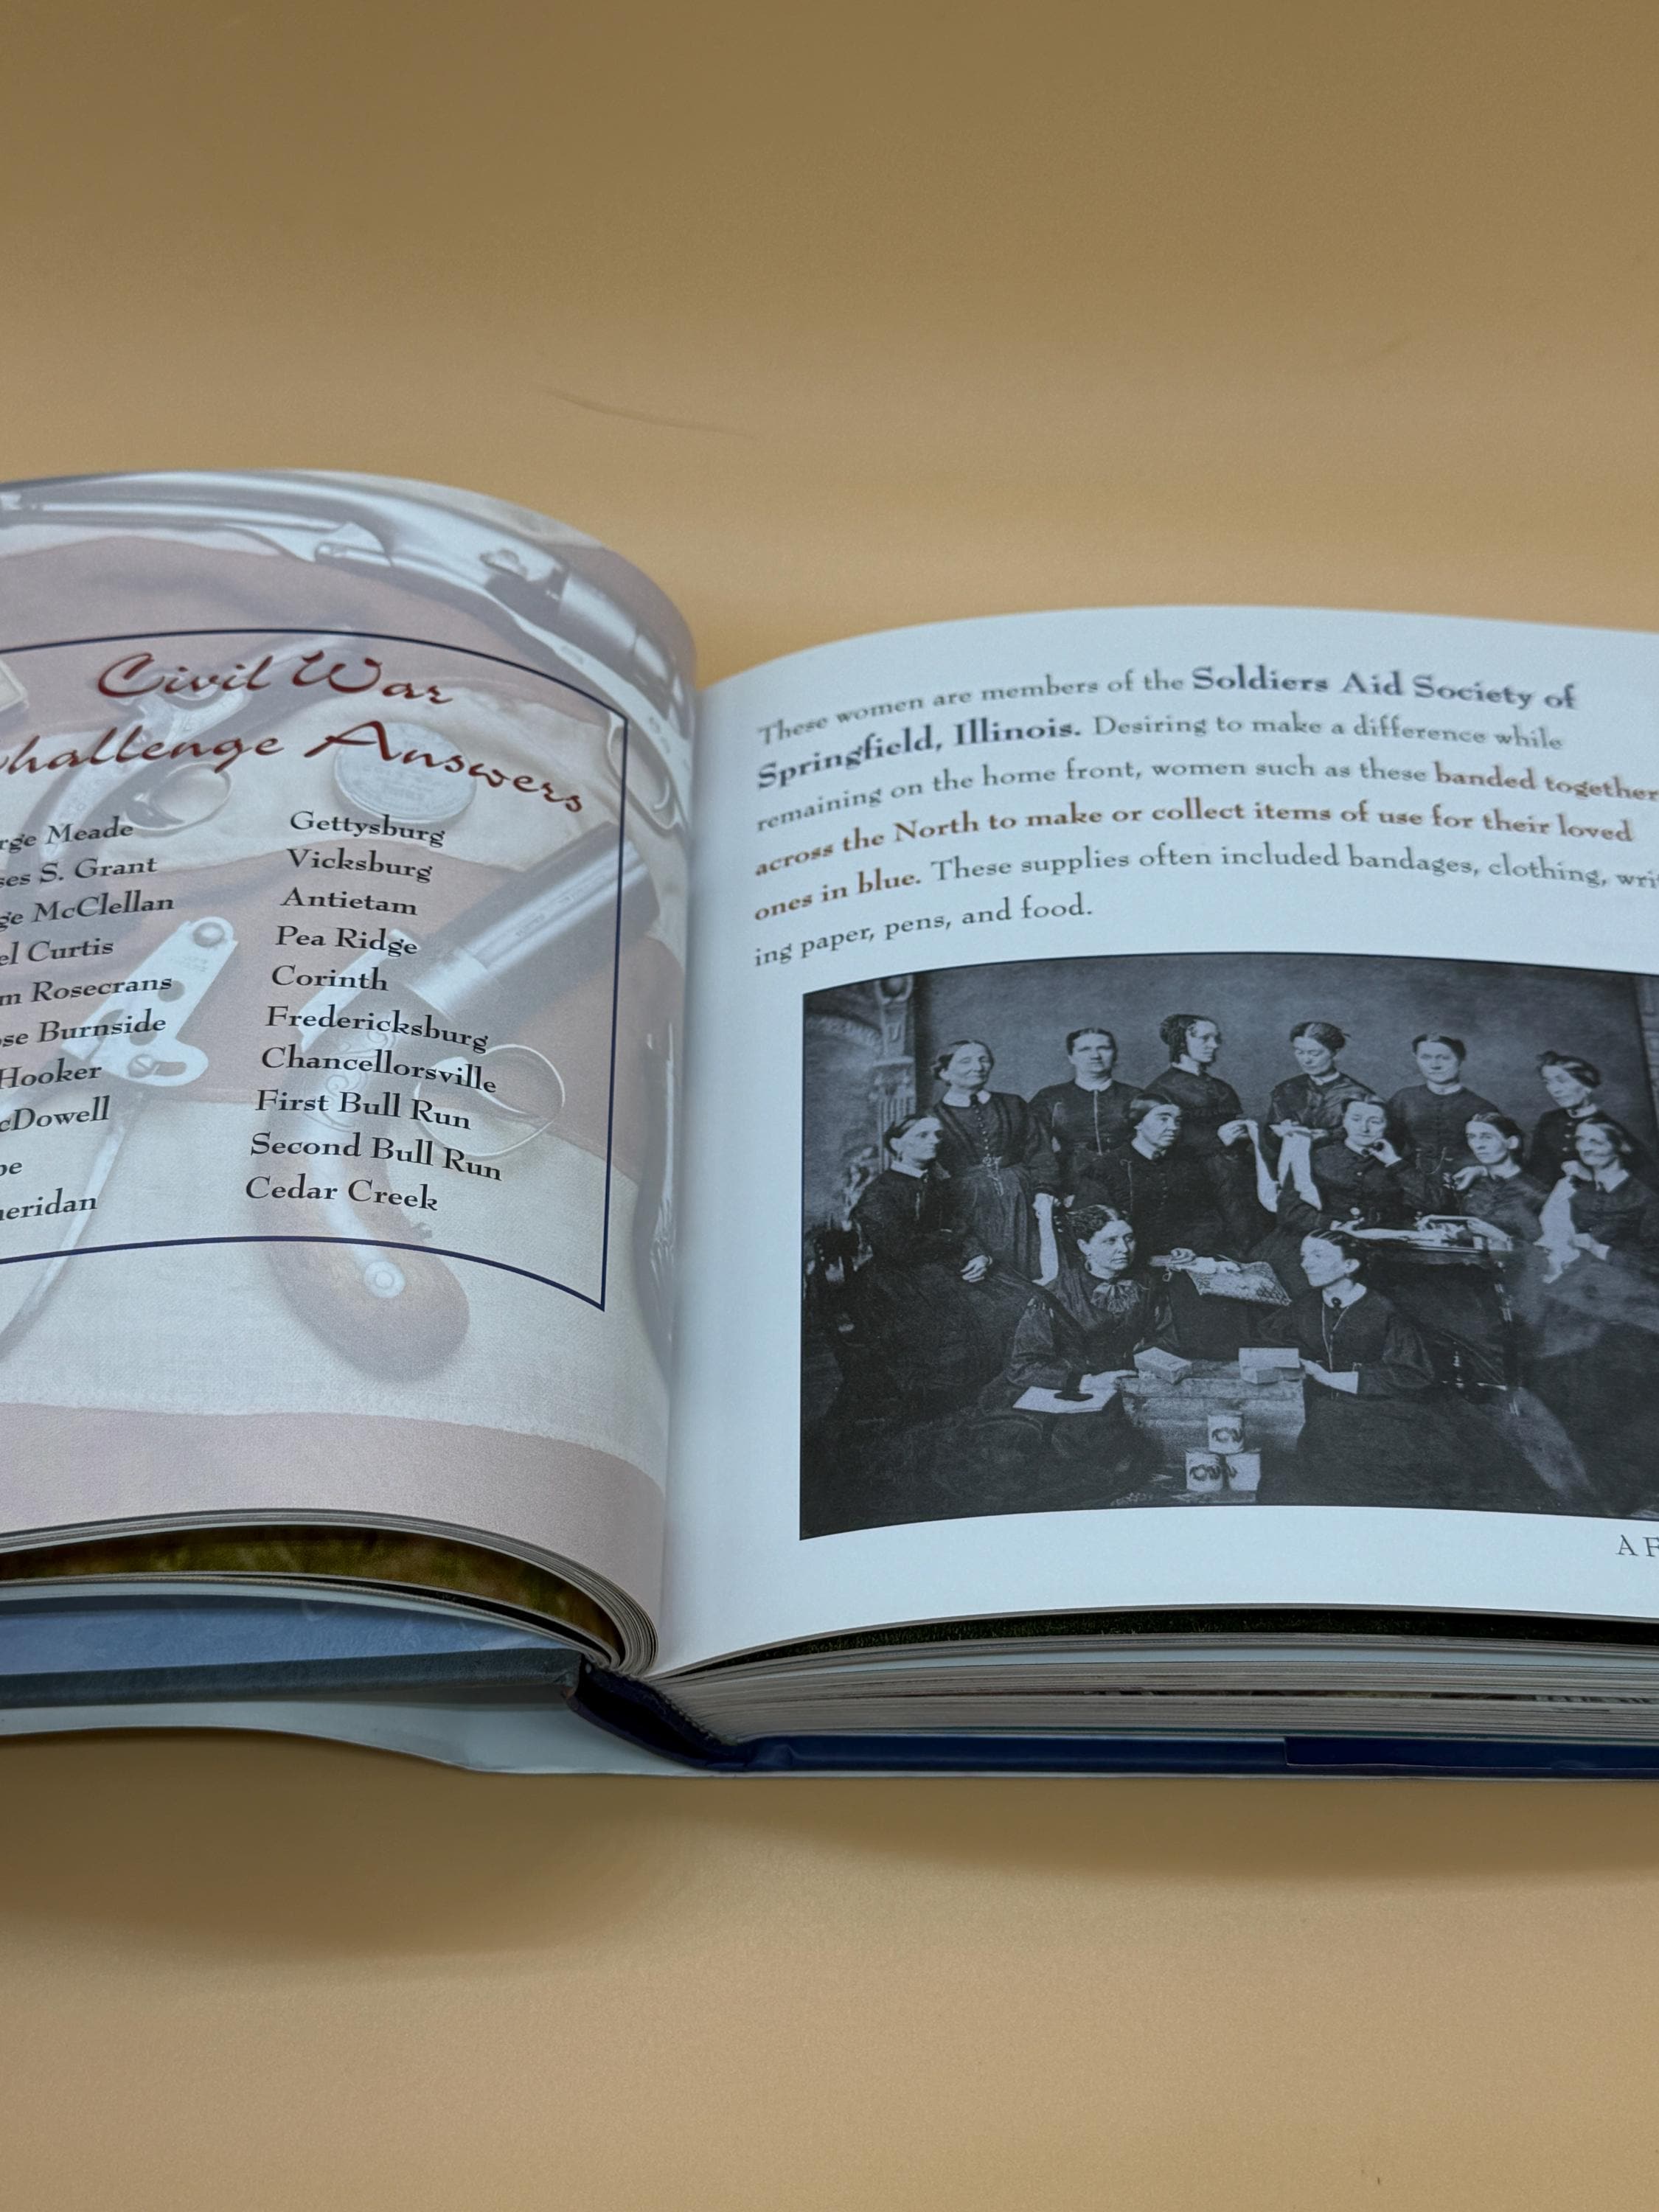 Civil War
hallenge Answers
rge Meade Gettysburg
ses S. Grant Vicksburg
ge McClellan Antietam
el Curtis Pea Ridge
m Rosecrans Corinth
ose Burnside Fredericksburg
Hooker Chancellorsville
cDowell First Bull Run
pe Second Bull Run
eridan Cedar Creek
These women are members of the Soldiers Aid Society of
Springfield, Illinois. Desiring to make a difference while
remaining on the home front, women such as these banded together
across the North to make or collect items of use for their loved
ones in blue. These supplies often included bandages, clothing, writ
ing paper, pens, and food.
A F